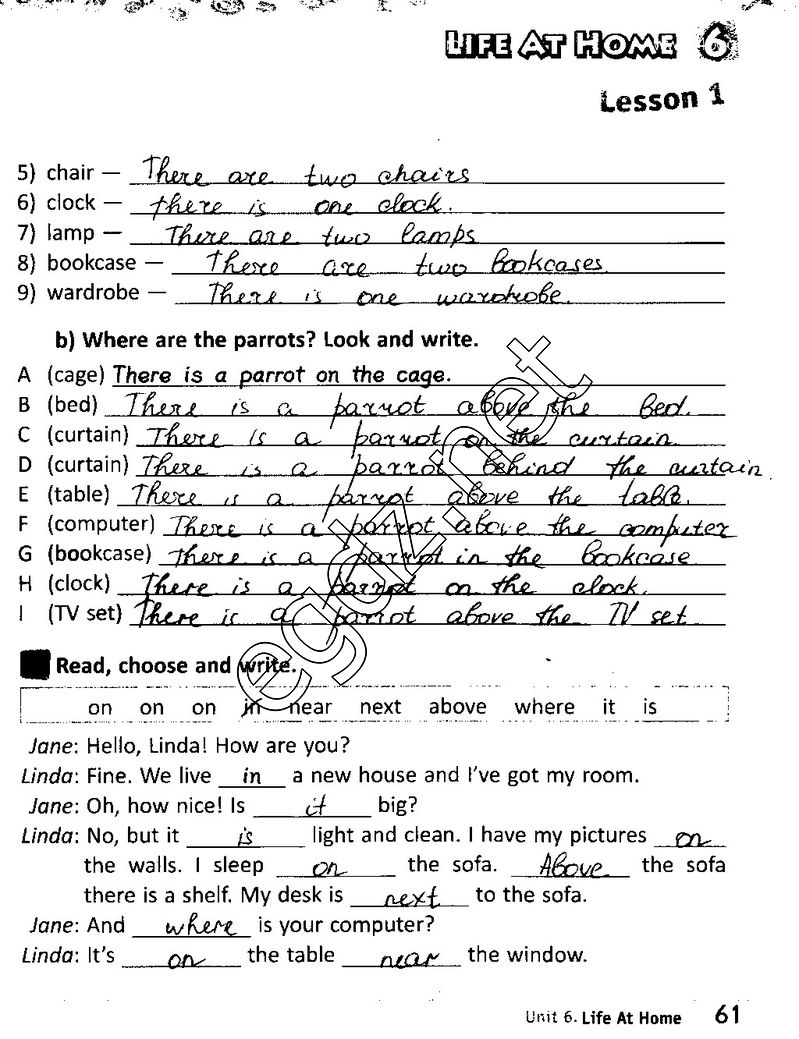 LIFE AT HOME 6
Lesson 1
5) chair — There are two chairs
6) clock — there is one clock.
7) lamp — There are two lamps
8) bookcase — There are two bookcases.
9) wardrobe — There is one wardrobe.
b) Where are the parrots? Look and write.
A (cage) There is a parrot on the cage.
B (bed) There is a parrot above the bed.
C (curtain) There is a parrot on the curtain.
D (curtain) There is a parrot behind the curtain.
E (table) There is a parrot above the table.
F (computer) There is a parrot above the computer
G (bookcase) There is a parrot in the bookcase
H (clock) There is a parrot on the clock.
I (TV set) There is a parrot above the TV set
egdz.net
Read, choose and write.
on on on in near next above where it is
Jane: Hello, Linda! How are you?
Linda: Fine. We live in a new house and I've got my room.
Jane: Oh, how nice! Is it big?
Linda: No, but it is light and clean. I have my pictures on
the walls. I sleep on the sofa. Above the sofa
there is a shelf. My desk is next to the sofa.
Jane: And where is your computer?
Linda: It's on the table near the window.
Unit 6. Life At Home 61